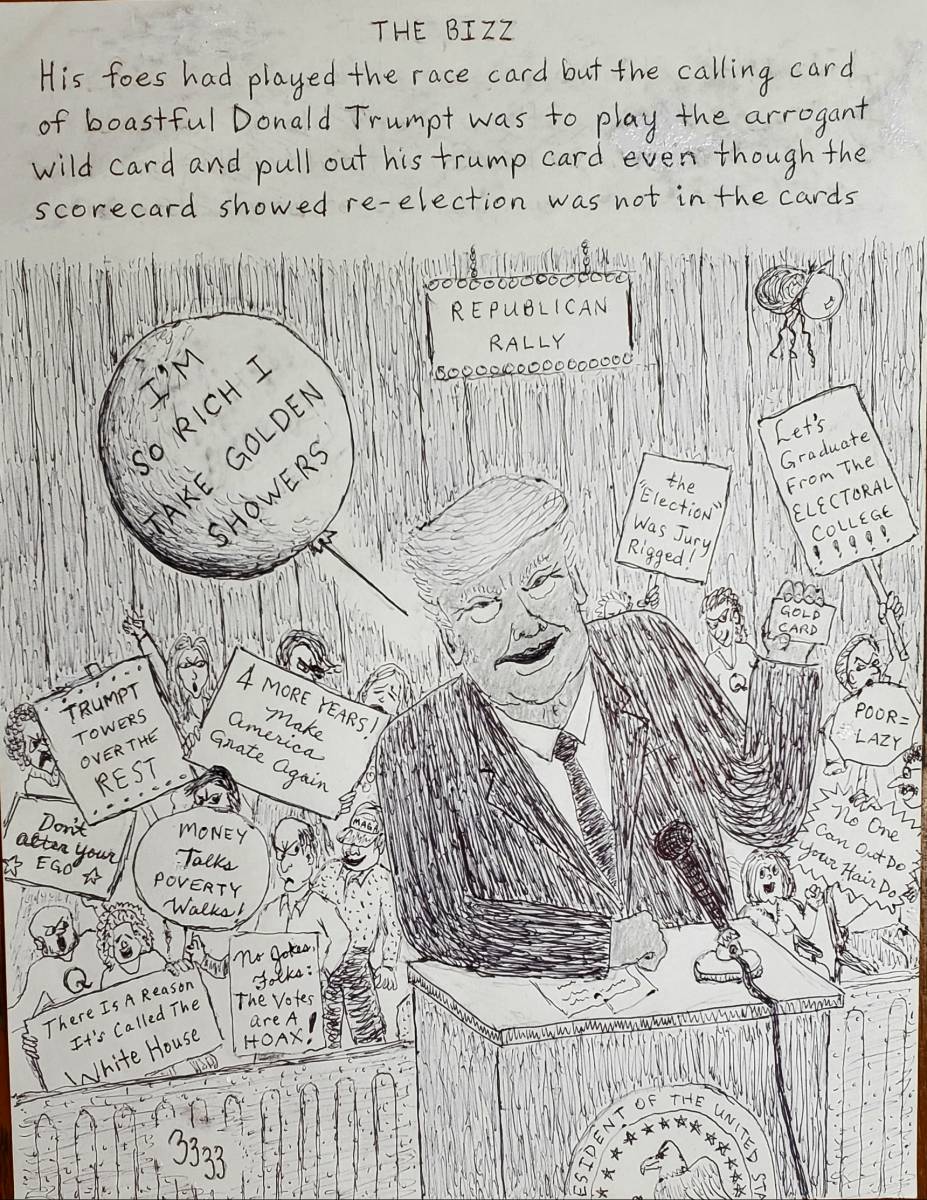 THE BIZZ
His foes had played the race card but the calling card
of boastful Donald Trumpt was to play the arrogant
wild card and pull out his trump card even though the
scorecard showed re-election was not in the cards
REPUBLICAN
RALLY
I'M
SO RICH I
TAKE GOLDEN
SHOWERS
the
"Election"
Was Jury
Rigged!
Let's
Graduate
From The
ELECTORAL
COLLEGE
!!!!!
GOLD
CARD
Q
POOR=
LAZY
TRUMPT
TOWERS
OVER THE
REST
4 MORE YEARS!
Make
America
Grate Again
MAGA
Don't
alter your
EGO
MONEY
Talks
POVERTY
Walks!
No One
Can Out Do
Your Hair Do!
Q
No Jokes,
Folks:
The Votes
are A
HOAX!
There Is A Reason
It's Called The
White House
3333
ESIDENT OF THE UNITED ST